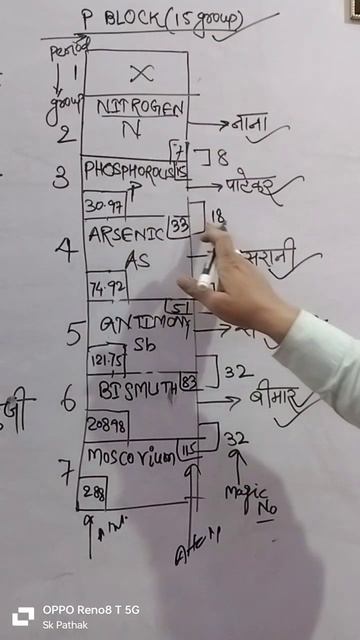 P BLOCK (15 group)
Period
1
X
group
NITROGEN
N
2
7
नाना
8
3
PHOSPHOROUS
15
P
पाटेकर
30.97
18
ARSENIC
33
4
AS
सरानी
74.92
51
5
ANTIMONY
Sb
121.75
32
BISMUTH
83
6
बीमार
208.98
32
MOSCORIUM
115
7
288
Magic
No
OPPO Reno8 T 5G
Sk Pathak